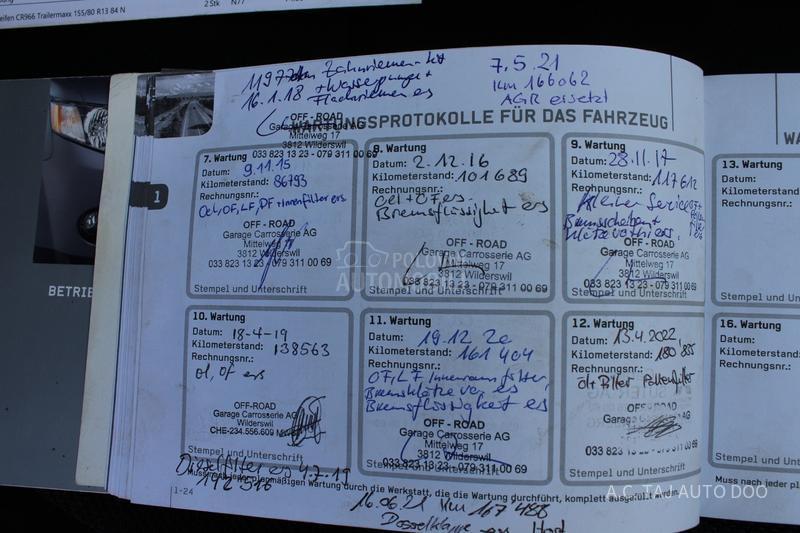 eifen CR966 Trailermaxx 155/80 R13 84 N
2 Stk
N77
Zahnriemen-kit
+ Wasserpumpe +
16.1.18 Flachriemen ers
7.5.21
Km 166062
AGR ersetzt
WARTUNGSPROTOKOLLE FÜR DAS FAHRZEUG
WA
1
BETRIE
OFF - ROAD
Garage Carrosserie AG
Mittelweg 17
3812 Wilderswil
033 823 13 23 - 079 311 00 69
7. Wartung
Datum: 9.11.15
Kilometerstand: 86793
Rechnungsnr.:
Oel, OF, LF, PF + Innenfilter ers
OFF - ROAD
Garage Carrosserie AG
Mittelweg 17
3812 Wilderswil
033 823 13 23 - 079 311 00 69
Stempel und Unterschrift
8. Wartung
Datum: 2.12.16
Kilometerstand: 101689
Rechnungsnr.:
Oel + OF ers
Bremsflüssigkeit ers
OFF - ROAD
Garage Carrosserie AG
Mittelweg 17
3812 Wilderswil
033 823 13 23 - 079 311 00 69
Stempel und Unterschrift
9. Wartung
Datum: 28.11.17
Kilometerstand: 117612
Rechnungsnr.:
Kleiner Service
Bremsscheiben +
Klötze
OFF - ROAD
Garage Carrosserie AG
Mittelweg 17
3812 Wilderswil
033 823 13 23 - 079 311 00 69
Stempel und Unterschrift
13. Wartung
Datum:
Kilometerstand:
Rechnungsnr.:
Stempel und Unters
10. Wartung
Datum: 18-4-19
Kilometerstand: 138563
Rechnungsnr.:
öl, öf ers
OFF-ROAD
Garage Carrosserie AG
Wilderswil
CHE-234.556.609
Stempel und Unterschrift
11. Wartung
Datum: 19.12.20
Kilometerstand: 161404
Rechnungsnr.:
OF, LF Innenraumfilter,
Bremsklötze vo, es
Bremsflüssigkeit es
OFF - ROAD
Garage Carrosserie AG
Mittelweg 17
3812 Wilderswil
033 823 13 23 - 079 311 00 69
Stempel und Unterschrift
12. Wartung
Datum: 13.4.2022
Kilometerstand: 180 885
Rechnungsnr.:
öl + Filter Pollenfilter
OFF - ROAD
033 823 13 23 - 079 311 00 69
Stempel und Unterschrift
16. Wartung
Datum:
Kilometerstand:
Rechnungsnr.:
Stempel und Unter
Dieselfilter es 4.7.19
planmäßigen Wartung durch die Werkstatt, die die Wartung durchführt, komplett ausgefüllt werden.
Muss nach jeder pl
1-24
16.06.21 Km 167 488
POLOVNI
AUTOMOBILI
A.C. TAJ AUTO DOO